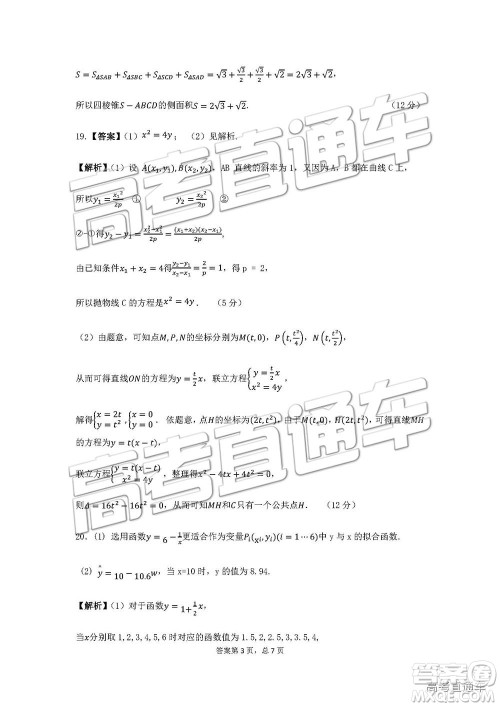 S = S△SAB + S△SBC + S△SCD + S△SAD = √3 + √3/2 + √3/2 + √2 = 2√3 + √2,
所以四棱锥S − ABCD的侧面积S = 2√3 + √2. (12 分)
19.【答案】(1) x² = 4y; (2) 见解析.
【解析】(1) 设 A(x₁,y₁), B(x₂,y₂), AB 直线的斜率为 1, 又因为 A, B 都在曲线 C 上,
所以y₁ = x₁²/2p ① y₂ = x₂²/2p ②
②-①得y₂ − y₁ = (x₂²−x₁²)/2p = (x₁+x₂)(x₂−x₁)/2p,
由已知条件x₁ + x₂ = 4得(y₂−y₁)/(x₂−x₁) = 2/p = 1, 得 p = 2,
所以抛物线 C 的方程是x² = 4y. (5 分)
(2) 由题意, 可知点M, P, N的坐标分别为M(t, 0), P(t, t²/4), N(t, t²/2),
从而可得直线ON的方程为y = (t/2)x, 联立方程{y = (t/2)x, x² = 4y,
解得{x = 2t, y = t², {x = 0, y = 0. 依题意, 点H的坐标为(2t, t²), 由于M(t, 0), H(2t, t²), 可得直线MH
的方程为y = t(x − t),
联立方程{y = t(x − t), x² = 4y, 整理得x² − 4tx + 4t² = 0,
则Δ = 16t² − 16t² = 0, 从而可知MH和C只有一个公共点H. (12 分)
20. (1) 选用函数y = 6 − 1/x更适合作为变量Pᵢ(xᵢ, yᵢ)(i = 1⋯6)中 y 与 x 的拟合函数.
(2) ŷ = 10 − 10.6w, 当 x=10 时, y 的值为 8.94.
【解析】(1) 对于函数y = 1 + ½x,
当x分别取 1, 2, 3, 4, 5, 6 时对应的函数值为 1.5, 2, 2.5, 3, 3.5, 4,
答案第 3 页, 总 7 页
高考直通车
高考直通车
高考直通车
高考直通车